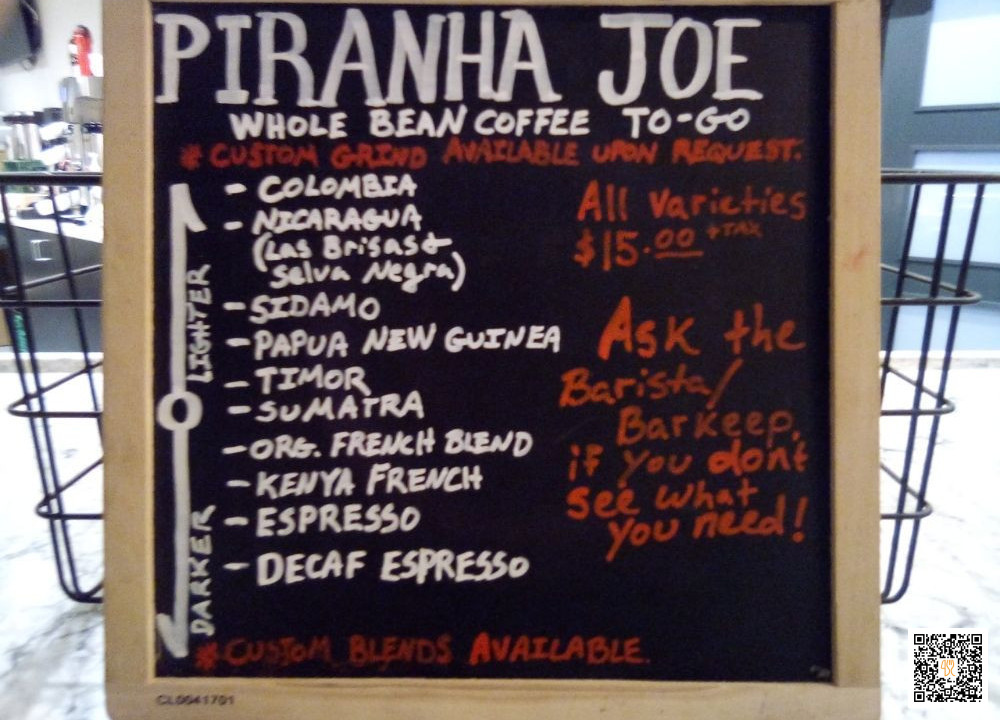 PIRANHA JOE
WHOLE BEAN COFFEE TO-GO
* CUSTOM GRIND AVAILABLE UPON REQUEST.
- COLOMBIA
- NICARAGUA
(Las Brisas &
Selva Negra)
- SIDAMO
- PAPUA NEW GUINEA
- TIMOR
- SUMATRA
- ORG. FRENCH BLEND
- KENYA FRENCH
- ESPRESSO
- DECAF ESPRESSO
LIGHTER
DARKER
All Varieties
$15.00 +TAX
Ask the
Barista/
Barkeep,
if you dont
see what
you need!
* CUSTOM BLENDS AVAILABLE.
CL0041701